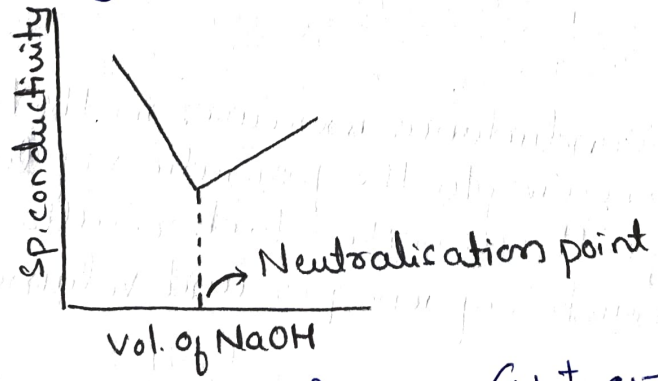 Sp. conductivity
Neutralisation point
Vol. of NaOH